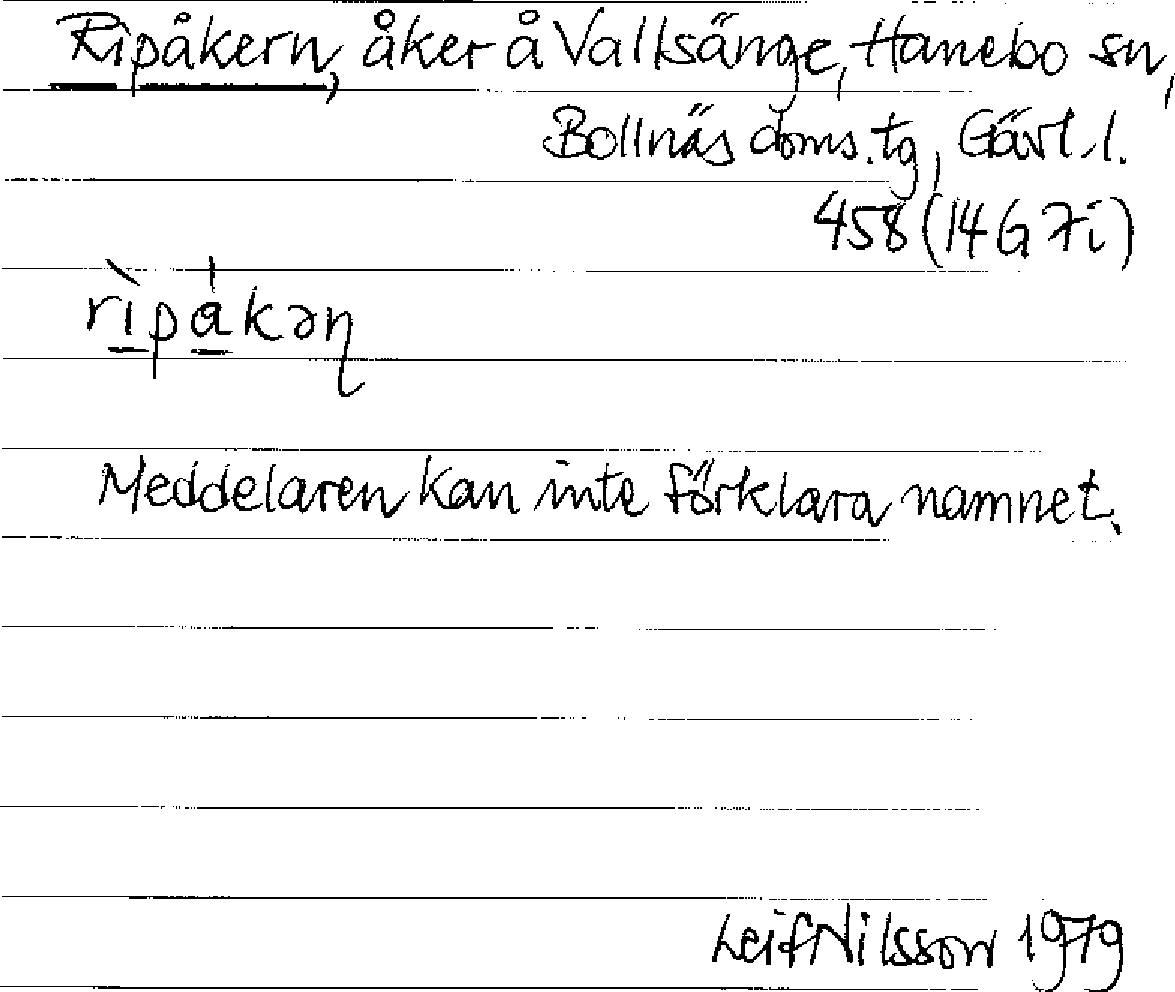 Ripåkern, åker å Vallsänge, Hanebo sn,
Bollnäs doms. tg, Gävl. l.
458 (14 G 7i)
rìpåkəɳ
Meddelaren kan inte förklara namnet.
Leif Nilsson 1979